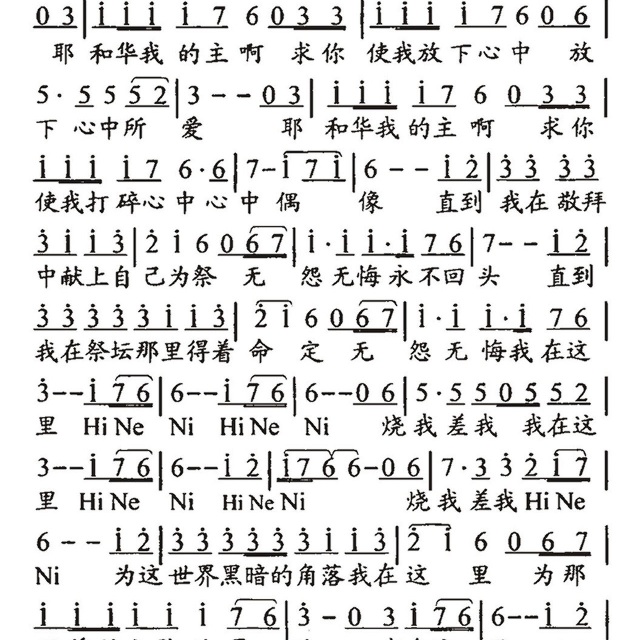 0 3 | i i i i 7 6 0 3 3 | i i i i 7 6 0 6 |
耶 和华我 的主啊 求你 使我放下心中 放
5· 5 5 5 2 | 3 - - 0 3 | i i i i 7 6 0 3 3 |
下 心中所 爱 耶 和华我的主啊 求你
i i i i 7 6·6 | 7 - i 7 i | 6 - - i 2 | 3 3 3 3
使我打碎心中心中 偶 像 直到 我在敬拜
3 i i 3 | 2 i 6 0 6 7 | i·i i·i 7 6 | 7 - - i 2 |
中献上自己为祭 无 怨无悔永不回头 直到
3 3 3 3 3 i i 3 | 2 i 6 0 6 7 | i·i i·i 7 6
我在祭坛那里得着 命 定 无 怨无 悔我在这
3 - - i 7 6 | 6 - - i 7 6 | 6 - - 0 6 | 5·5 5 0 5 5 2
里 Hi Ne Ni Hi Ne Ni 烧我差我 我在这
3 - - i 7 6 | 6 - - i 2 | i 7 6 6 - 0 6 | 7·3 3 2 i 7 |
里 Hi Ne Ni Hi Ne Ni 烧我差我 Hi Ne
6 - - i 2 | 3 3 3 3 3 3 3 i i 3 | 2 i 6 0 6 7 |
Ni 为这 世界黑暗的角落我在 这 里 为那
i i i i i i 7 6 | 3 - 0 3 i 7 6 | 6 - - i 2 |